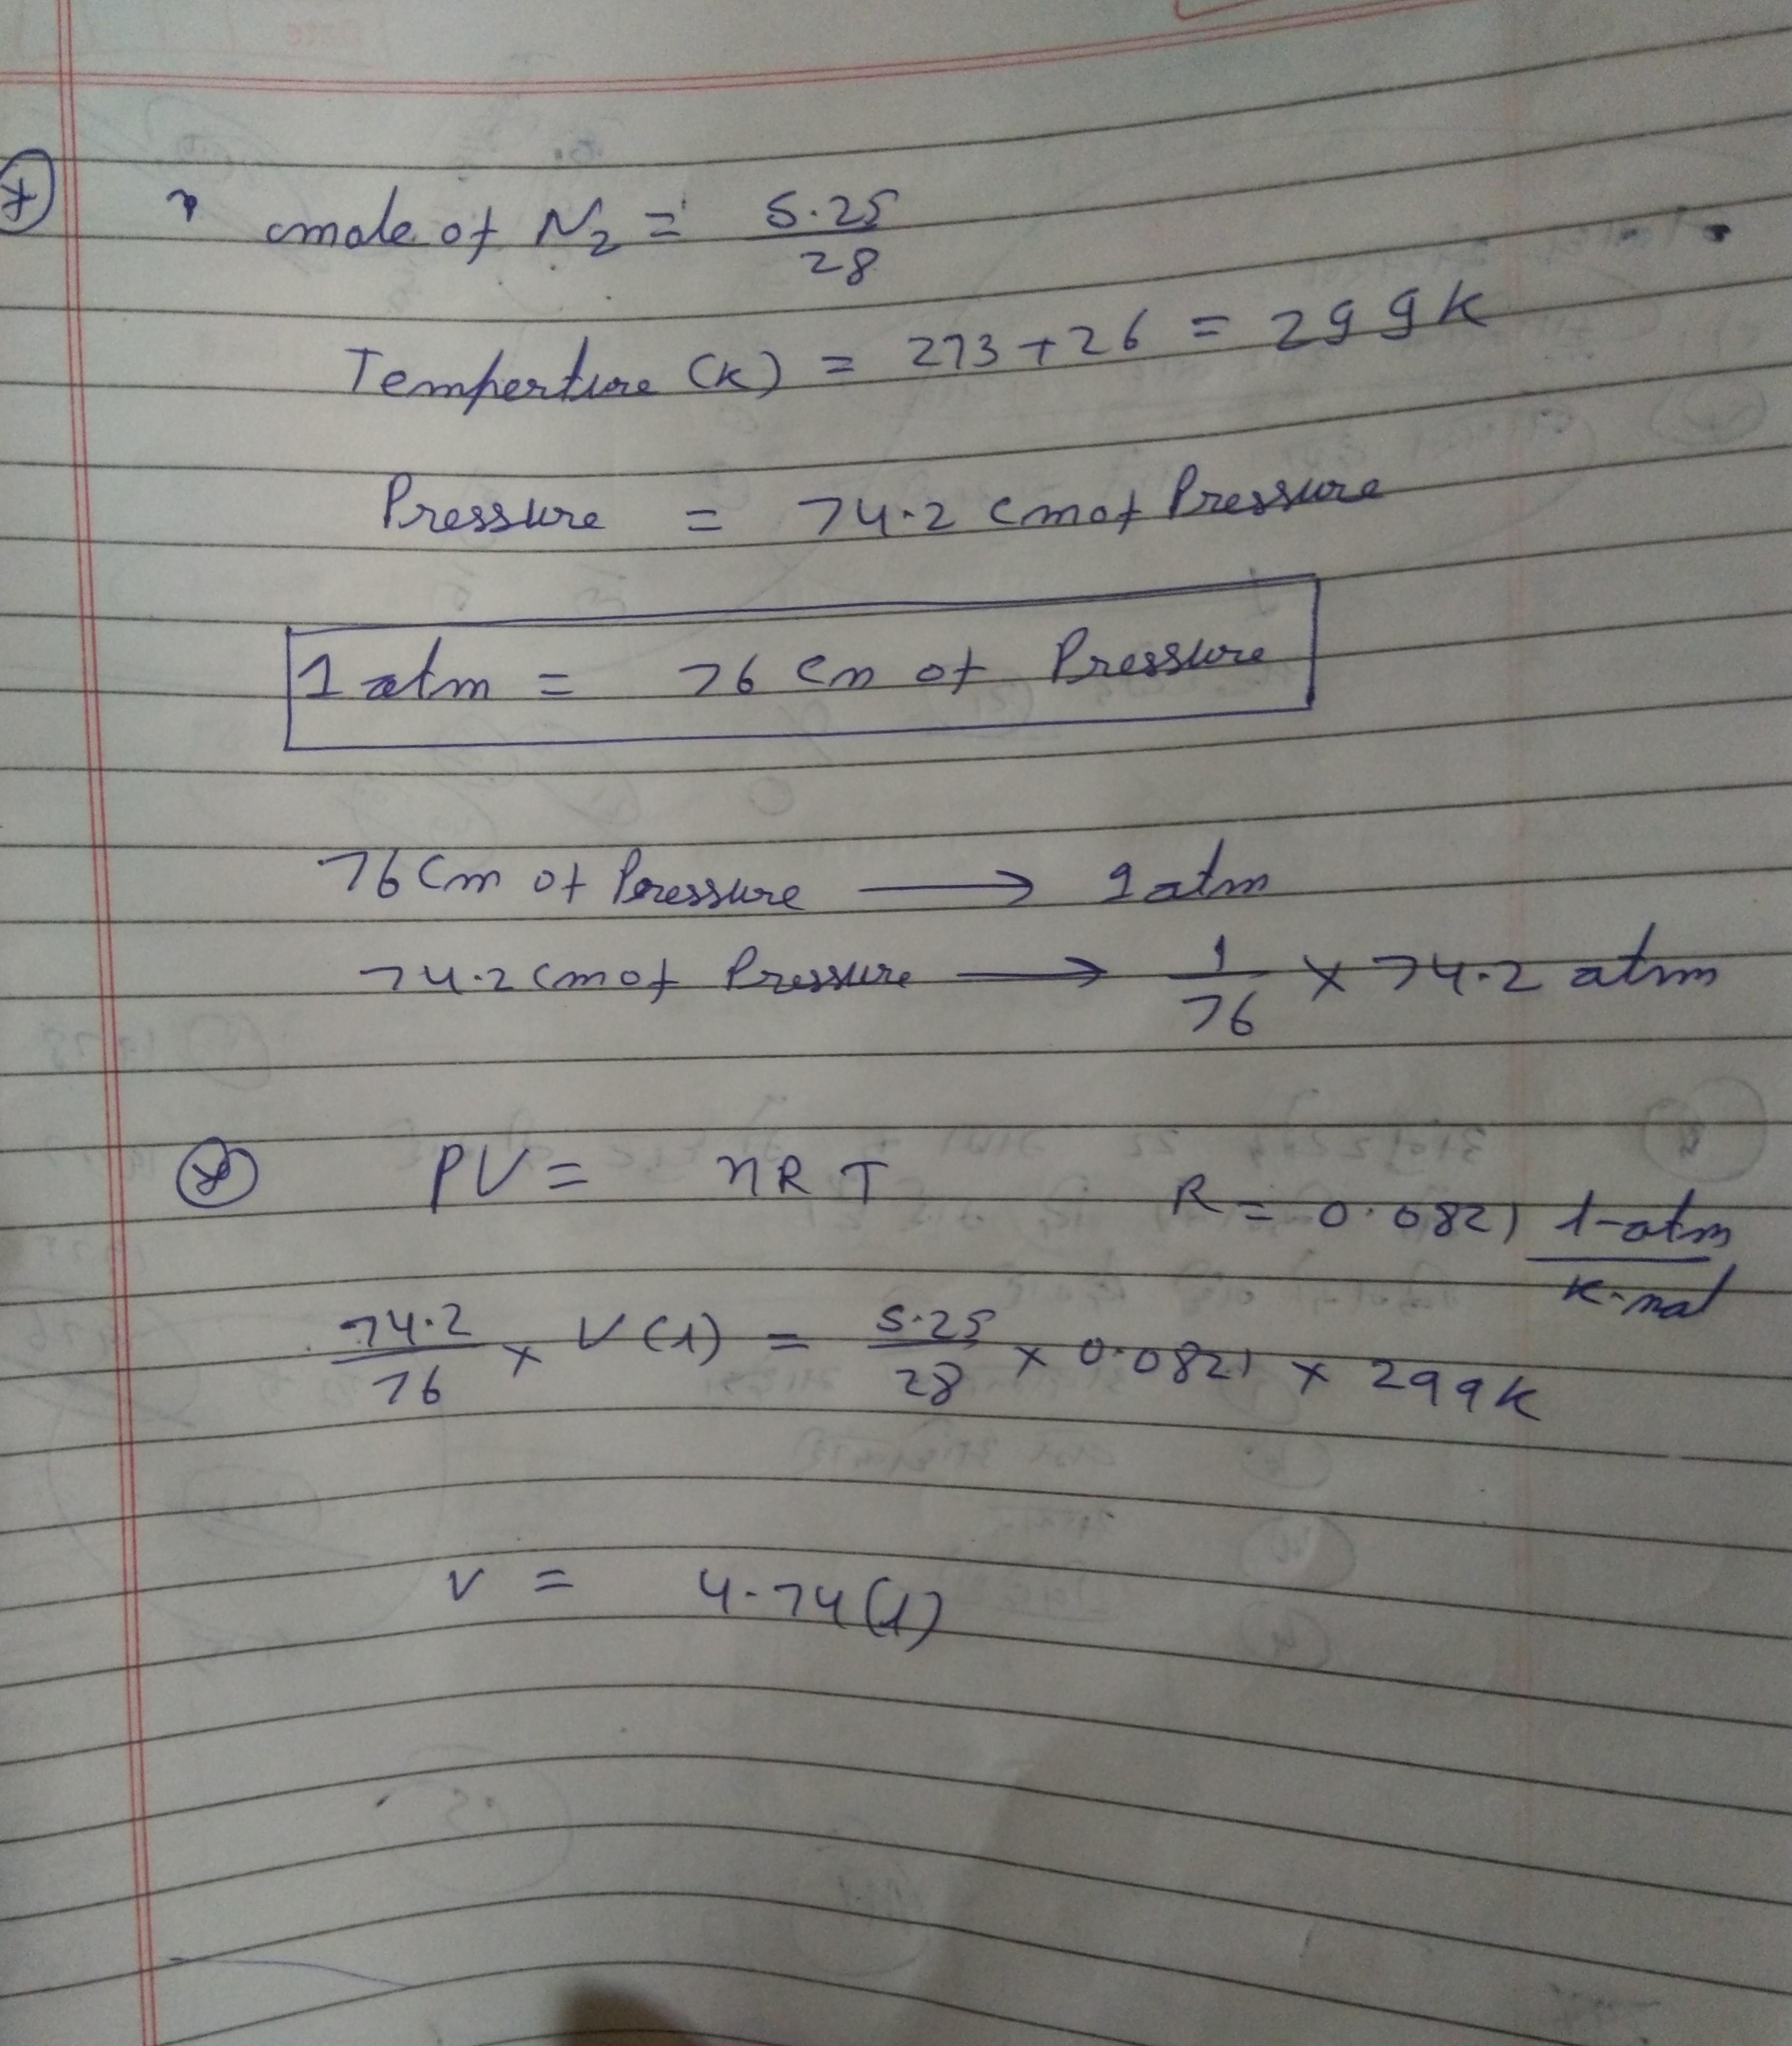 mole of N₂ = 5.25/28
Temperture (K) = 273 + 26 = 299K
Pressure = 74.2 cm of Pressure
1 atm = 76 cm of Pressure
76 cm of Pressure → 1 atm
74.2 cm of Pressure → 1/76 × 74.2 atm
PV = nRT R = 0.0821 l-atm/K-mol
74.2/76 × V(l) = 5.25/28 × 0.0821 × 299K
V = 4.74(l)